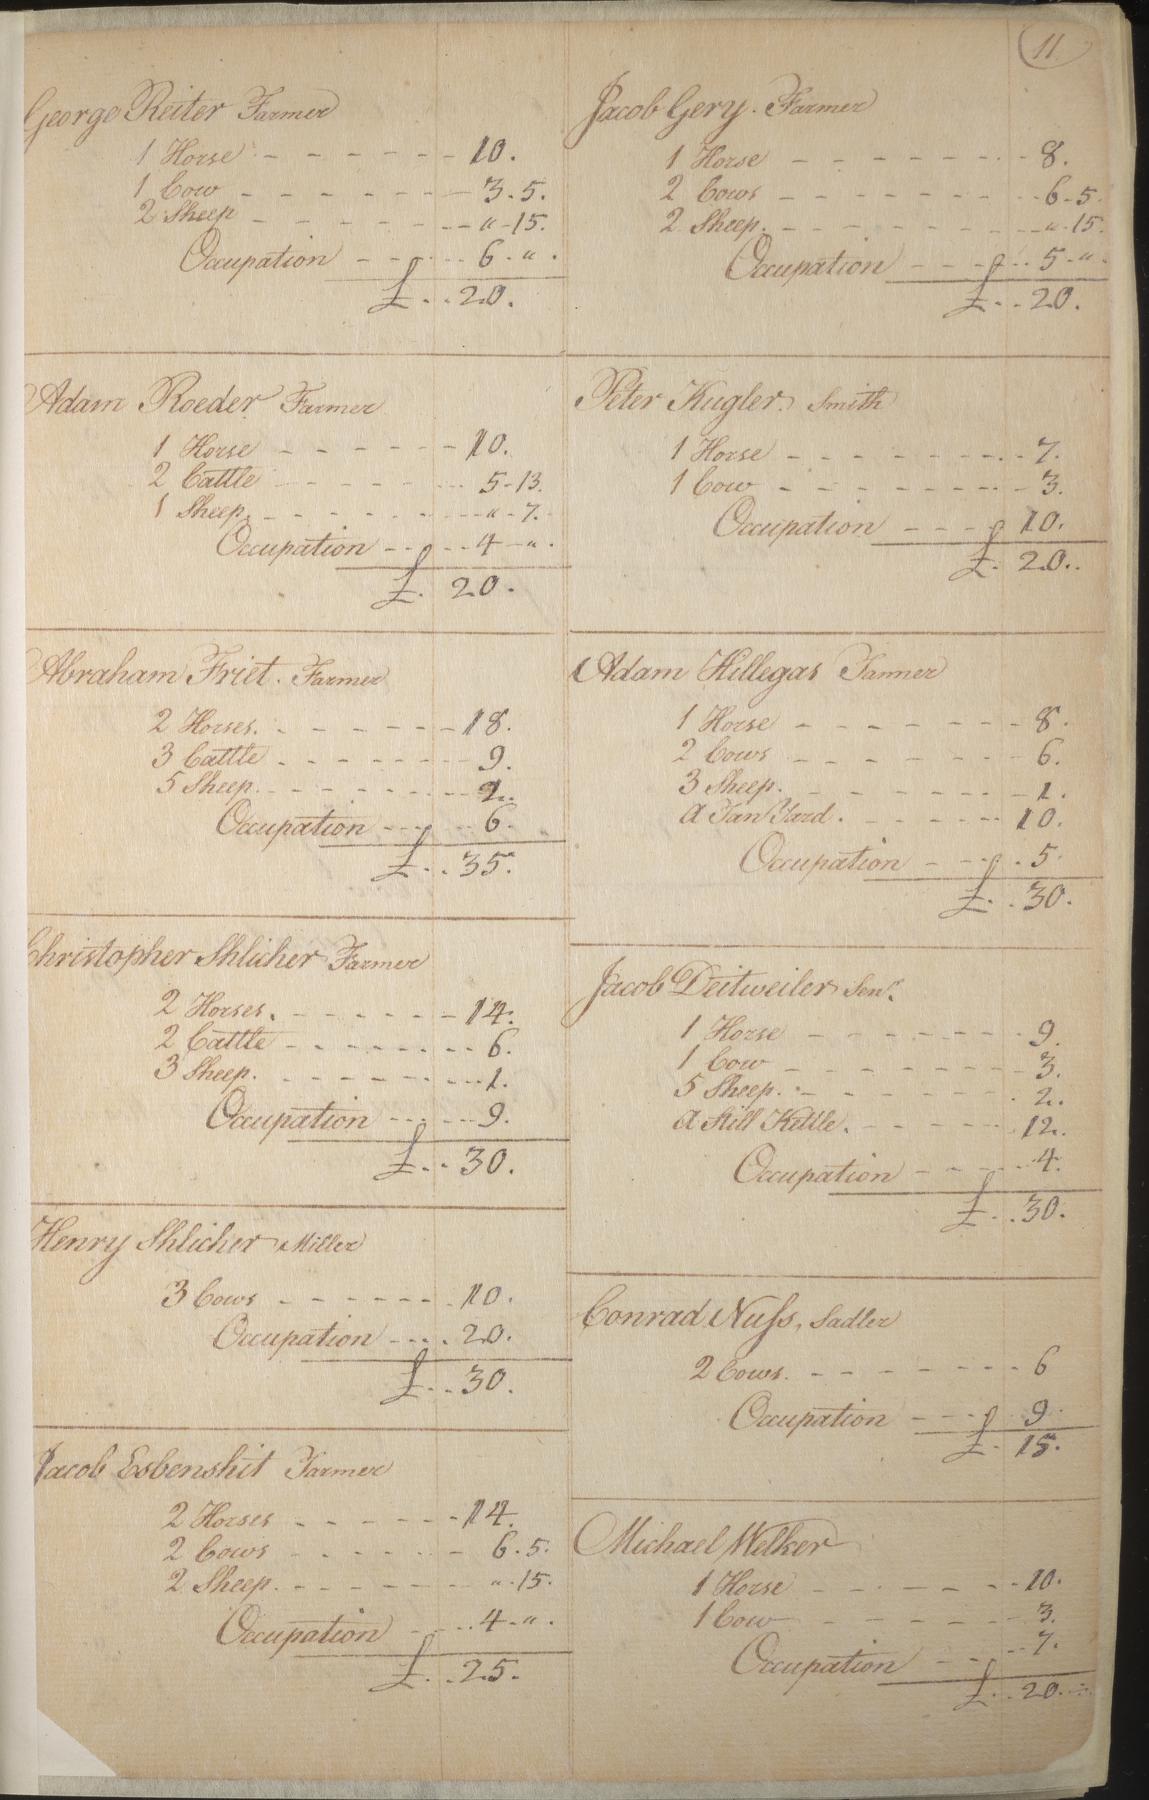 11
George Reiter Farmer
1 Horse - - - - - - 10.
1 Cow - - - - - - 3-5.
2 Sheep - - - - - - " -15.
Occupation - - - - 6-".
£..20.
Adam Roeder Farmer
1 Horse - - - - - - 10.
2 Cattle - - - - - - 5-13.
1 Sheep. - - - - - - "-7.
Occupation - - - - 4-".
£. 20.
Abraham Friet. Farmer
2 Horses. - - - - - - 18.
3 Cattle - - - - - - 9.
5 Sheep. - - - - - - 2.
Occupation - - - - 6.
£..35.
Christopher Shlicher Farmer
2 Horses. - - - - - - 14.
2 Cattle - - - - - - 6.
3 Sheep. - - - - - - 1.
Occupation - - - - 9.
£..30.
Henry Shlicher Miller
3 Cows - - - - - - 10.
Occupation - - - . 20.
£..30.
Jacob Esbenshit Farmer
2 Horses - - - - - - 14.
2 Cows - - - - - - 6.5.
2 Sheep. - - - - - - ".15.
Occupation - - - - 4-".
£..25.
Jacob Gery. Farmer
1 Horse - - - - - - 8.
2 Cows - - - - - - 6-5.
2 Sheep. - - - - - - ".15.
Occupation - - - - 5-".
£..20.
Peter Kugler. Smith
1 Horse - - - - - - 7.
1 Cow - - - - - - 3.
Occupation - - - - 10.
£. 20..
Adam Hillegas Tanner
1 Horse - - - - - - 8.
2 Cows - - - - - - 6.
3 Sheep. - - - - - - 1.
a Tan Yard. - - - - - 10.
Occupation - - - . 5.
£..30.
Jacob Deitweiler Senr.
1 Horse - - - - - - 9.
1 Cow - - - - - - 3.
5 Sheep. - - - - - - 2.
a Still Kettle. - - - - - 12.
Occupation - - - - 4.
£..30.
Conrad Nuss, Sadler
2 Cows. - - - - - - 6
Occupation - - - - 9.
£. 15.
Michael Welker
1 Horse - - - - - - 10.
1 Cow - - - - - - 3.
Occupation - - - - 7.
£..20.